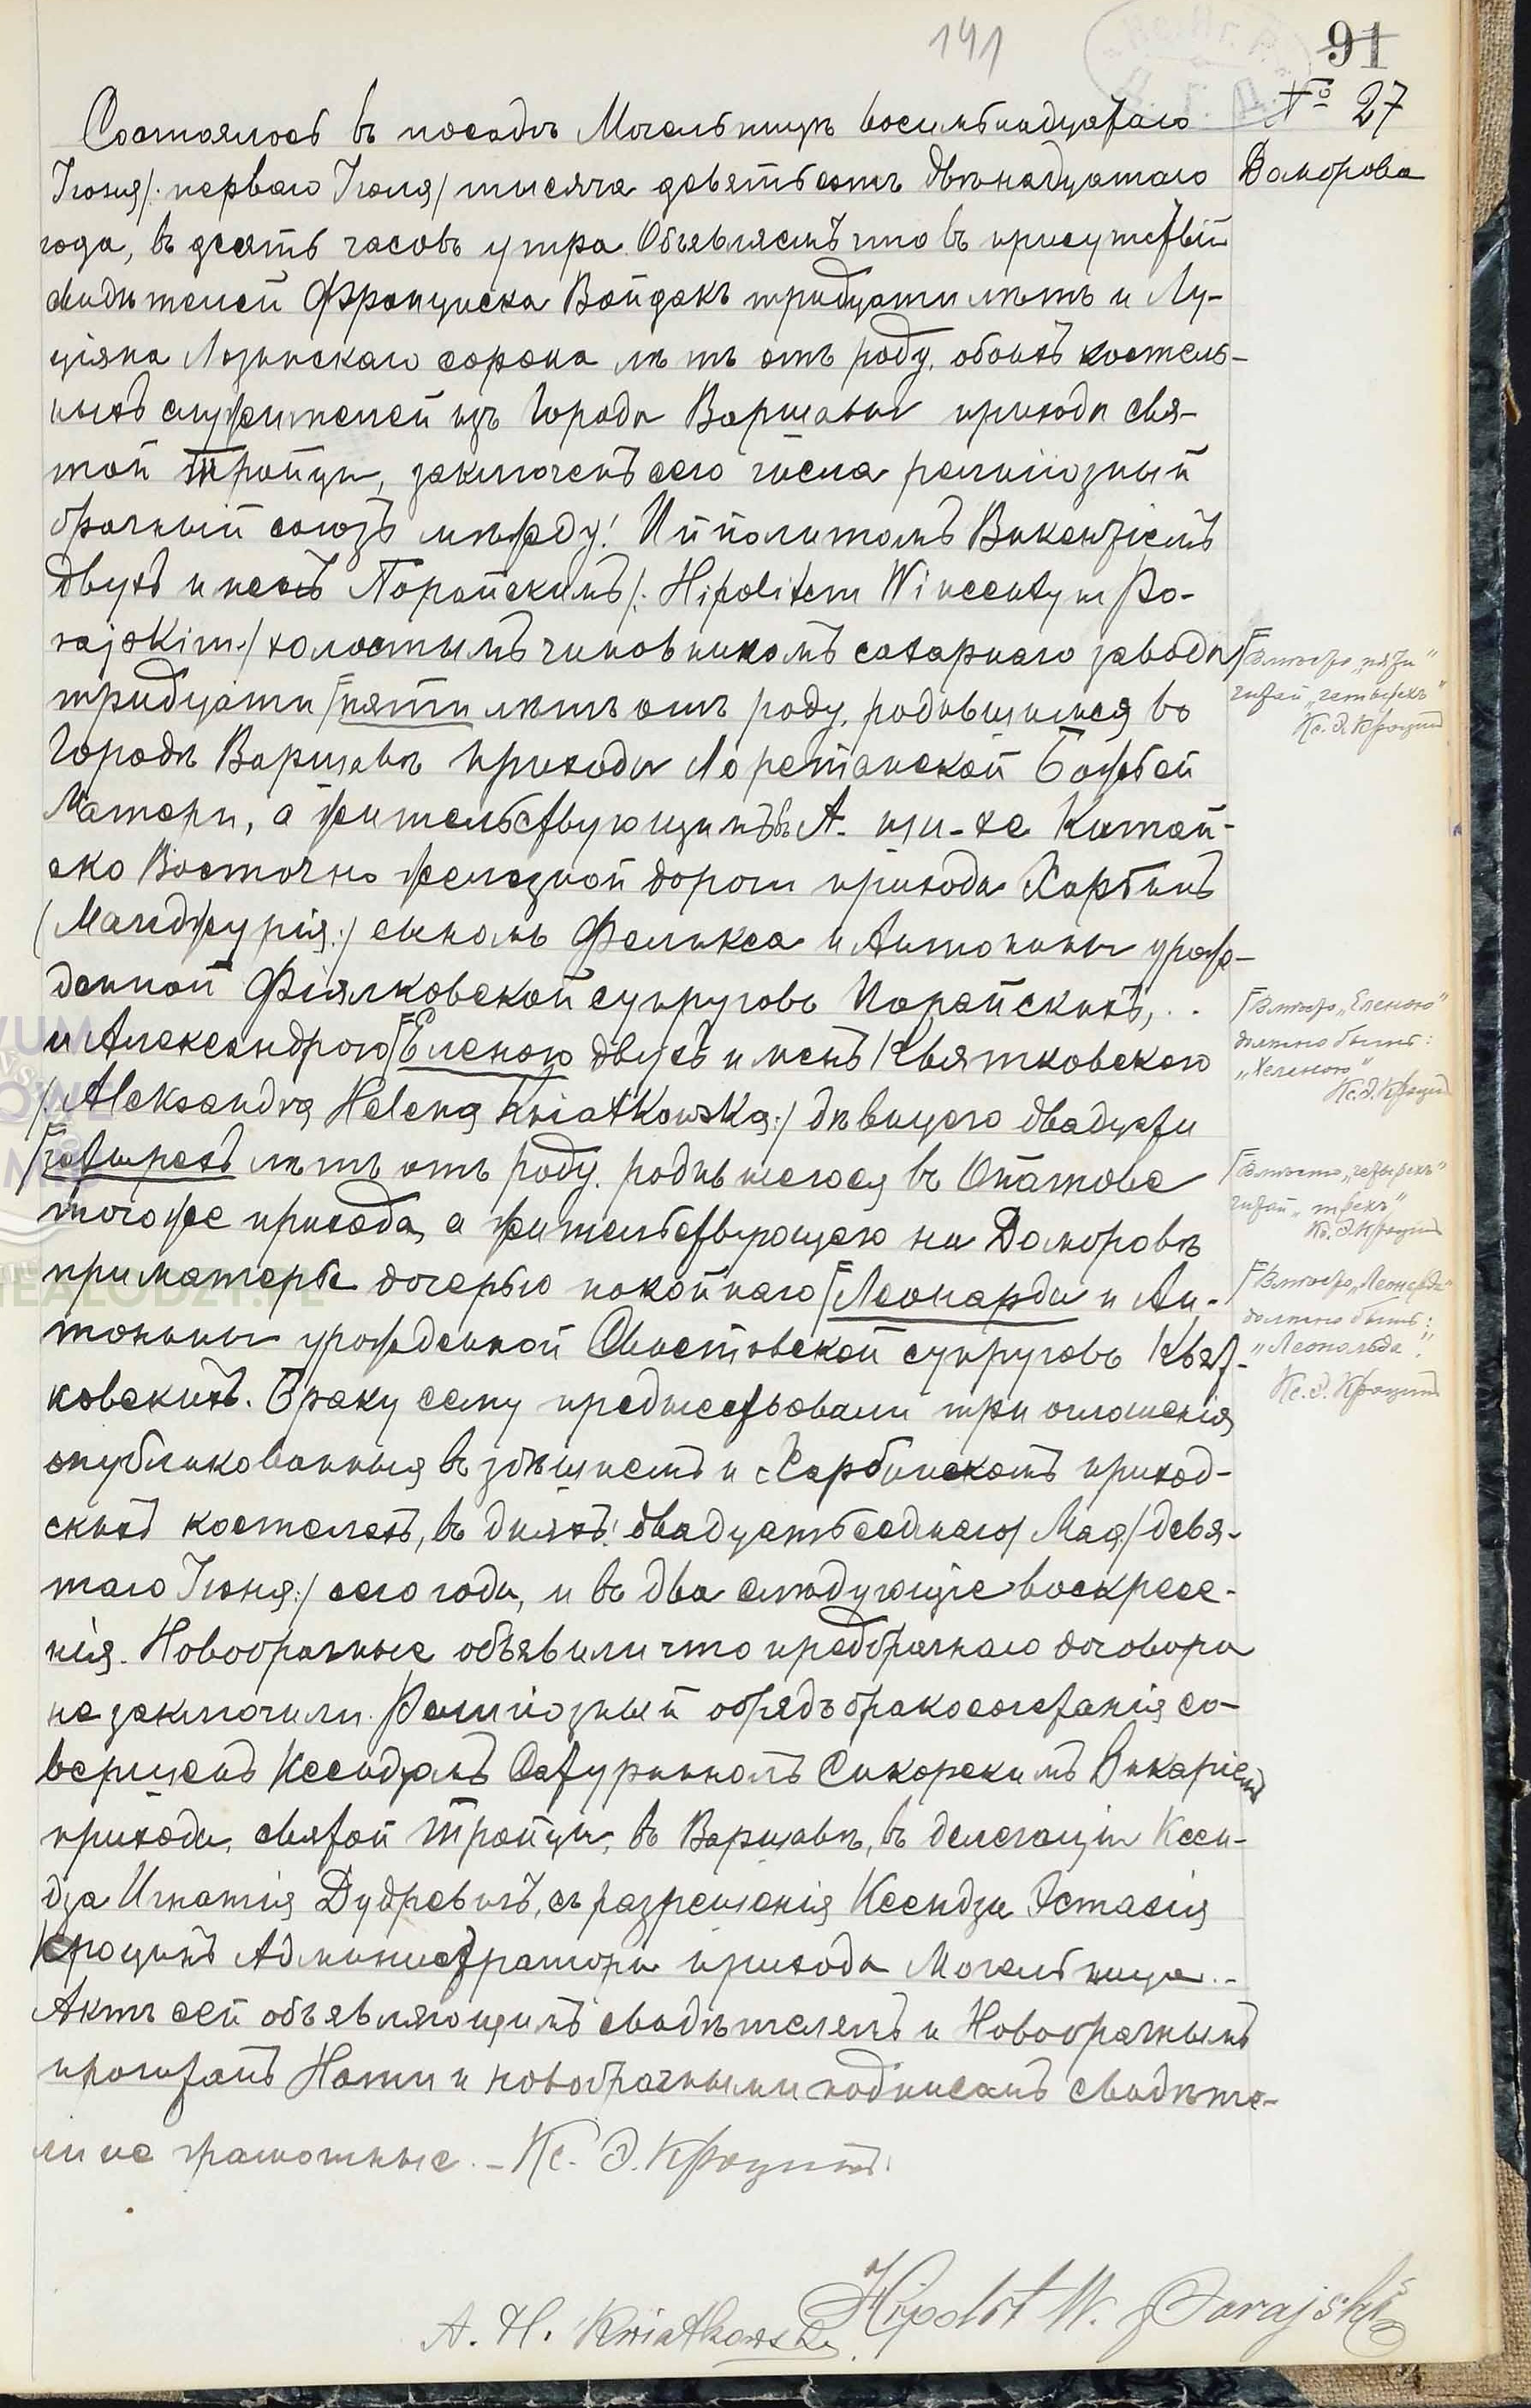 141
91
№ 27
Даморова
Состоялось въ посадѣ Могельницѣ восемьнадцатаго
Іюня /: перваго Іюля / тысяча девятьсотъ двѣнадцатаго
года, въ десять часовъ утра. Объявляемъ что въ присутствіи
свидѣтелей Францишка Войдакъ тридцати лѣтъ и Лу-
ціяна Лозинскаго сорока лѣтъ отъ роду, обоихъ костель-
ныхъ служителей изъ Города Варшавы прихода свя-
той Тройцы, заключенъ сего числа религіозный
брачный союзъ между: Ипполитомъ Викентіемъ
двухъ именъ Порайскимъ /: Hipolitem Wincentym Po-
rajskim :/ холостымъ чиновникомъ сахарнаго завода
тридцати пяти лѣтъ отъ роду, родившимся въ
Городѣ Варшавѣ прихода Лоретанской Божьей
Матери, а жительствующимъ въ А- ши-хе Китай-
ско Восточно желѣзной дороги прихода Харбинъ
(Манджурія :/ сыномъ Феликса и Антонины урож-
денной Фіялковской супруговъ Порайскихъ, . .
и Александрою Еленою двухъ именъ Квятковскою
/: Aleksandrą Heleną Kwiatkowską :/ дѣвицею двадцати
четырехъ лѣтъ отъ роду, родившеюся въ Опатове
тогоже прихода, а жительствующею на Даморовѣ
при матерѣ дочерью покойнаго Леонарда и Ан-
тонины урожденной Свистовской супруговъ Квят-
ковскихъ. Браку сему предшествовали три оглашенія
опубликованныя въ здѣшнемъ и Харбинскомъ приход-
скихъ костелехъ, въ дняхъ: двадцать седмаго Мая / девя-
таго Іюня :/ сего года, и въ два слѣдующіе воскресе-
нія. Новобрачные объявили что предбрачнаго договора
не заключили. Религіозный обрядъ бракосочетанія со-
вершенъ Ксендзомъ Сатурниномъ Сикорскимъ Викаріемъ
прихода, святой Тройцы, въ Варшавѣ, въ делегаціи Ксен-
дза Игнатія Дудревичъ, съ разрешенія Ксендза Эстахія
Кроцинъ Администратора прихода Могельница. -
Актъ сей объявляющимъ свидѣтелемъ и Новобрачнымъ
прочитанъ Нами и новобрачными подписанъ свидѣте-
ли не грамотные. - Кс. Э. Кроцинъ.
Вмѣсто „пяти"
читай „четырехъ"
Кс. Э. Кроцинъ
Вмѣсто „Еленою"
должно быть:
„Хеленою"
Кс. Э. Кроцинъ
Вмѣсто „четырехъ"
читай „трехъ"
Кс. Э. Кроцинъ
Вмѣсто „Леонарда"
должно быть:
„Леопольда".
Кс. Э. Кроцинъ
Hipolit W. Porajski
A. H. Kwiatkowska